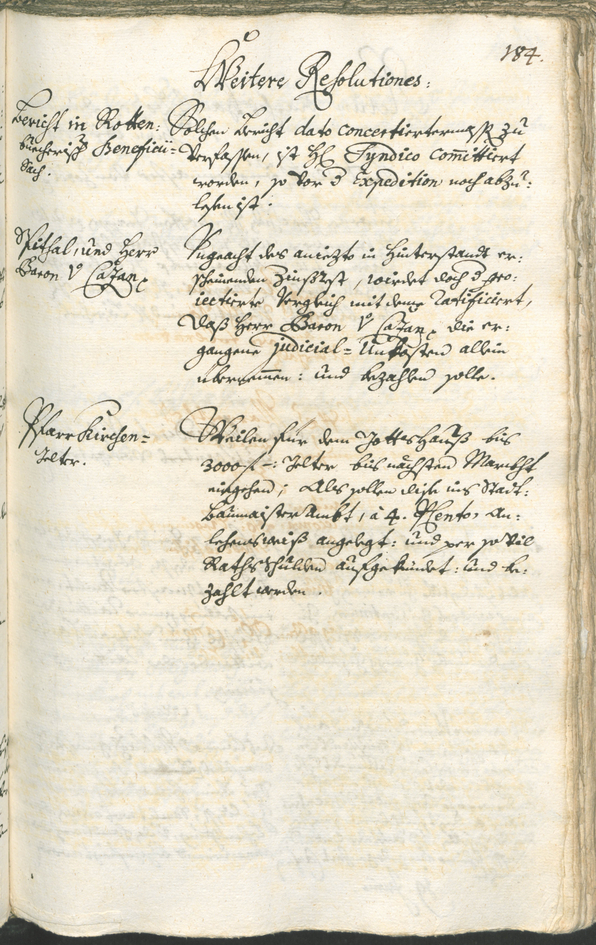 184.
Weitere Resolutiones:
Bericht in Rotten:
buecherisch Beneficii=
Sach.
Solchen Bericht dato concertiertermass zu
verfassen, ist H. Syndico committiert
worden, so vor d Expedition noch abzu:
lesen ist.
Spithal, und Herr
Baron V Cazan
Ungeacht des aniezto in Hinterstandt er:
scheinenden Zinsrest, wirdet doch d pro:
iectierte Vergleich mit deme ratificiert,
daß Herr Baron V Cazan die er:
gangene judicial=Unkosten allein
übernemmen: und bezahlen solle.
PfarrKirchen=
Gelter.
Weilen für dem GottsHauß bis
3000 f –: Gelter bis nächsten Marckht
eingehen; Als sollen dise ins Stadt:
BaumaisterAmbt, à 4. PCento, An:
lehensweiß angelegt: und per so vil
RathsSchulden aufgekündet: und be:
zahlt werden.